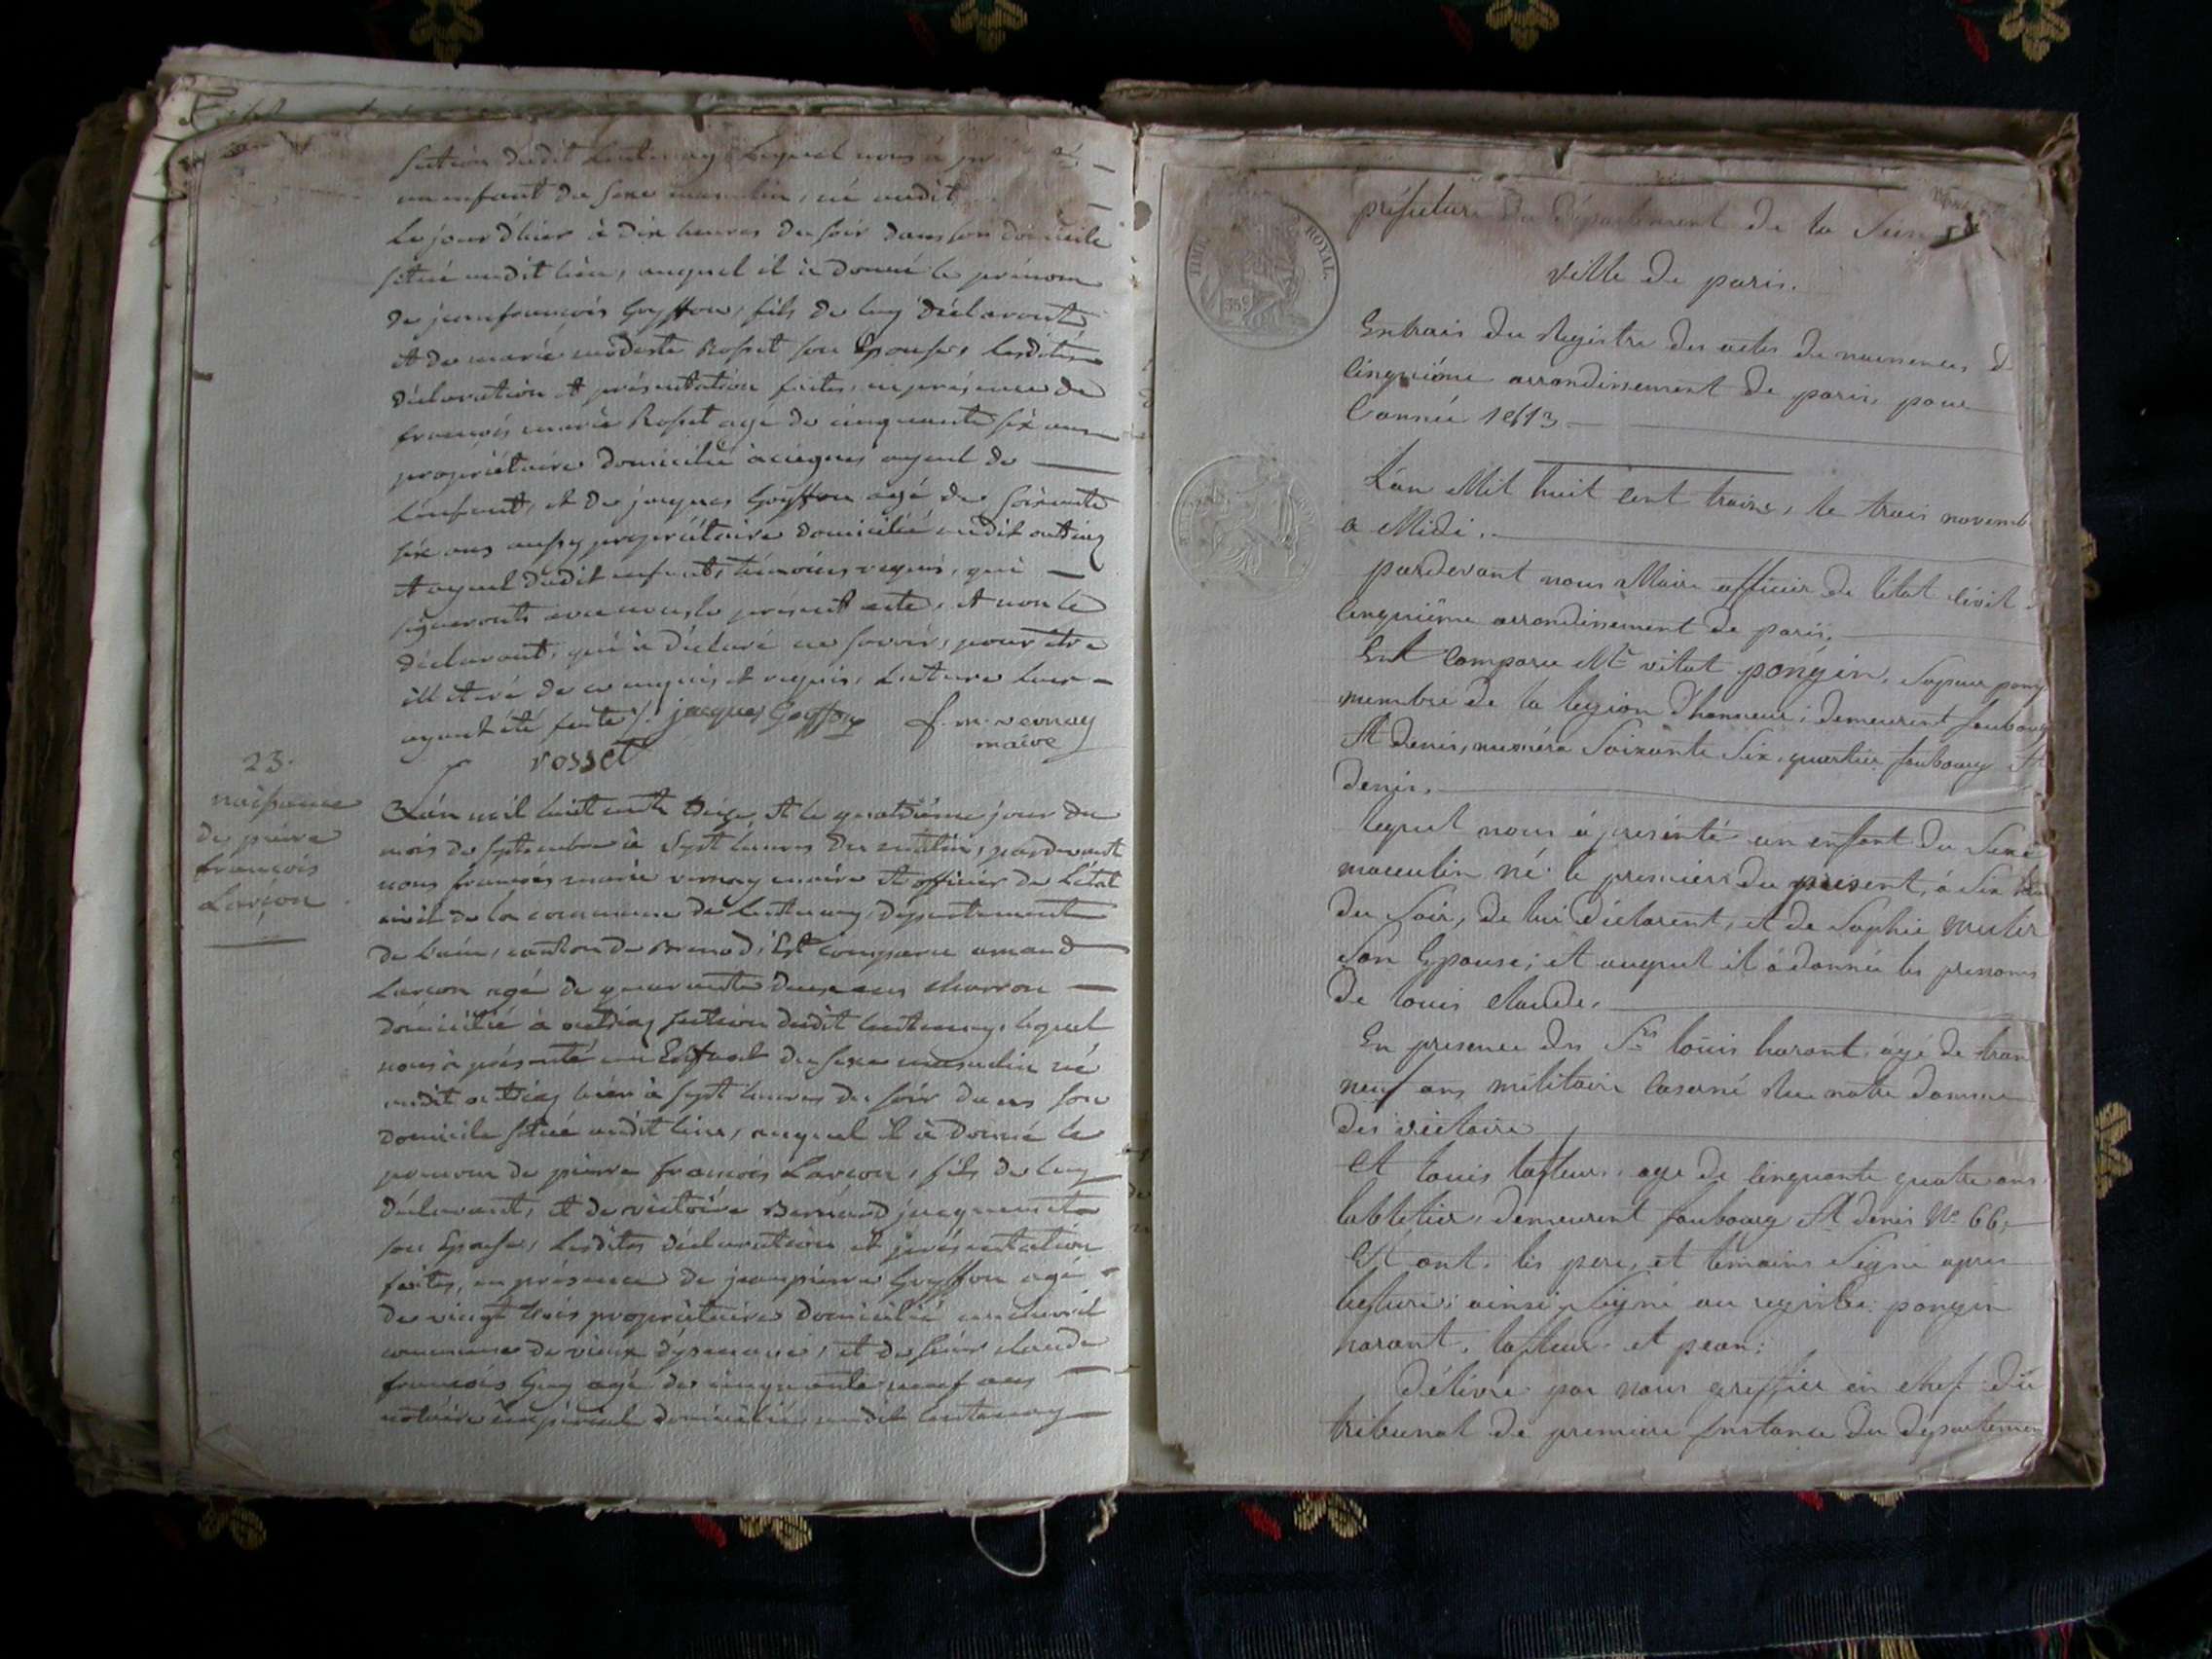 section dudit Lantenay Lequel nous à
un enfant du sexe masculin, né audit
Le jour d'hier à dix heures du soir dans son domicile
situé audit lieu, auquel il à donné le prénom
de jean françois Goyffon, fils de luy déclarant
et de marie modeste Rosset son Epouse, Lesdites
déclaration et présentation faites, en présence de
françois marie Rosset agé de cinquante six ans
propriétaire domicilié à ayeul de
Lenfant, et de jacques Goyffon agé de soixante
six ans aussy propriétaire domicilié audit outriaz
et ayeul dudit enfant, témoins requis, qui
signeronts avec nous le présent acte, et non le
déclarant, qui à déclaré ne savoir, pour être
illetéré de ce enquis et requis, Lecture Leur
ayant été faite /. jacques Goyffon f. m. vernay
maire
rosset
23.
naissance
de pierre
françois
Larçon
Lán mil huit cents treize, et le quatorzième jour du
mois de septembre à sept heures du matin, pardevant
nous françois marie vernay maire et officier de L'état
civil de la commune de Lantenay, département
de L'ain, canton de Brenod, Est comparu amand
Larçon agé de quarante deux ans charron
domicilié à outriaz section dudit lantenay, lequel
nous à présenté un Enfant du sexe masculin né
audit outriaz hier à sept heures du soir dans son
domicile situé audit lieu, auquel il à donné le
prenom de pierre françois Larçon, fils de luy
déclarant, et de victoire Bernard jacquemet
son Epouse, Lesdites déclaration et présentation
faites, en présence de jean pierre Goyffon agé
de vingt trois propriétaire domicilié au
commune de vieux d'yzenave, et de sieur claude
françois Guy agé de cinquante neuf ans
notaire impérial domicilié audit lantenay
préfecture du Département de la Seine
ville de paris.
TIMBRE ROYAL.
35 c
Extrais du Registre des actes de naissances d
Cinquiéme arrondissement de paris, pour
l'année 1813
L'an Mil huit cent traize, le trois novemb
a Midi.
pardevant nous Maire officier de l'état civil d
Cinquiéme arrondissement de paris,
Est Comparu Mr vital pongin, Sapeur pomp
membre de la legion d'honneur; demeurent faubourg
St denis, numéro Soixante Six, quartier faubourg St
denis,
lequel nous à presénté un enfant du Sexe
masculin né le premier du present, à Six heu
du Soir, de lui déclarent, et de Sophie muler
Son Epouse; et auquel il à donné les prenoms
de louis claude.
En presence des Srs louis harant, agé de tran
neuf ans militaire Caserné Rue notre damme
des victoire
et louis lafleur, age de Cinquante quatre ans
tabletier, demeurent faubourg St denis No 66,
Et ont, les pere, et temoins Signé apres
lecture; ainsi Signé au registre: pongin
harant, lafleur et pean;
Délivré par nous greffier en chef du
tribunal de premiere Instance du departemen